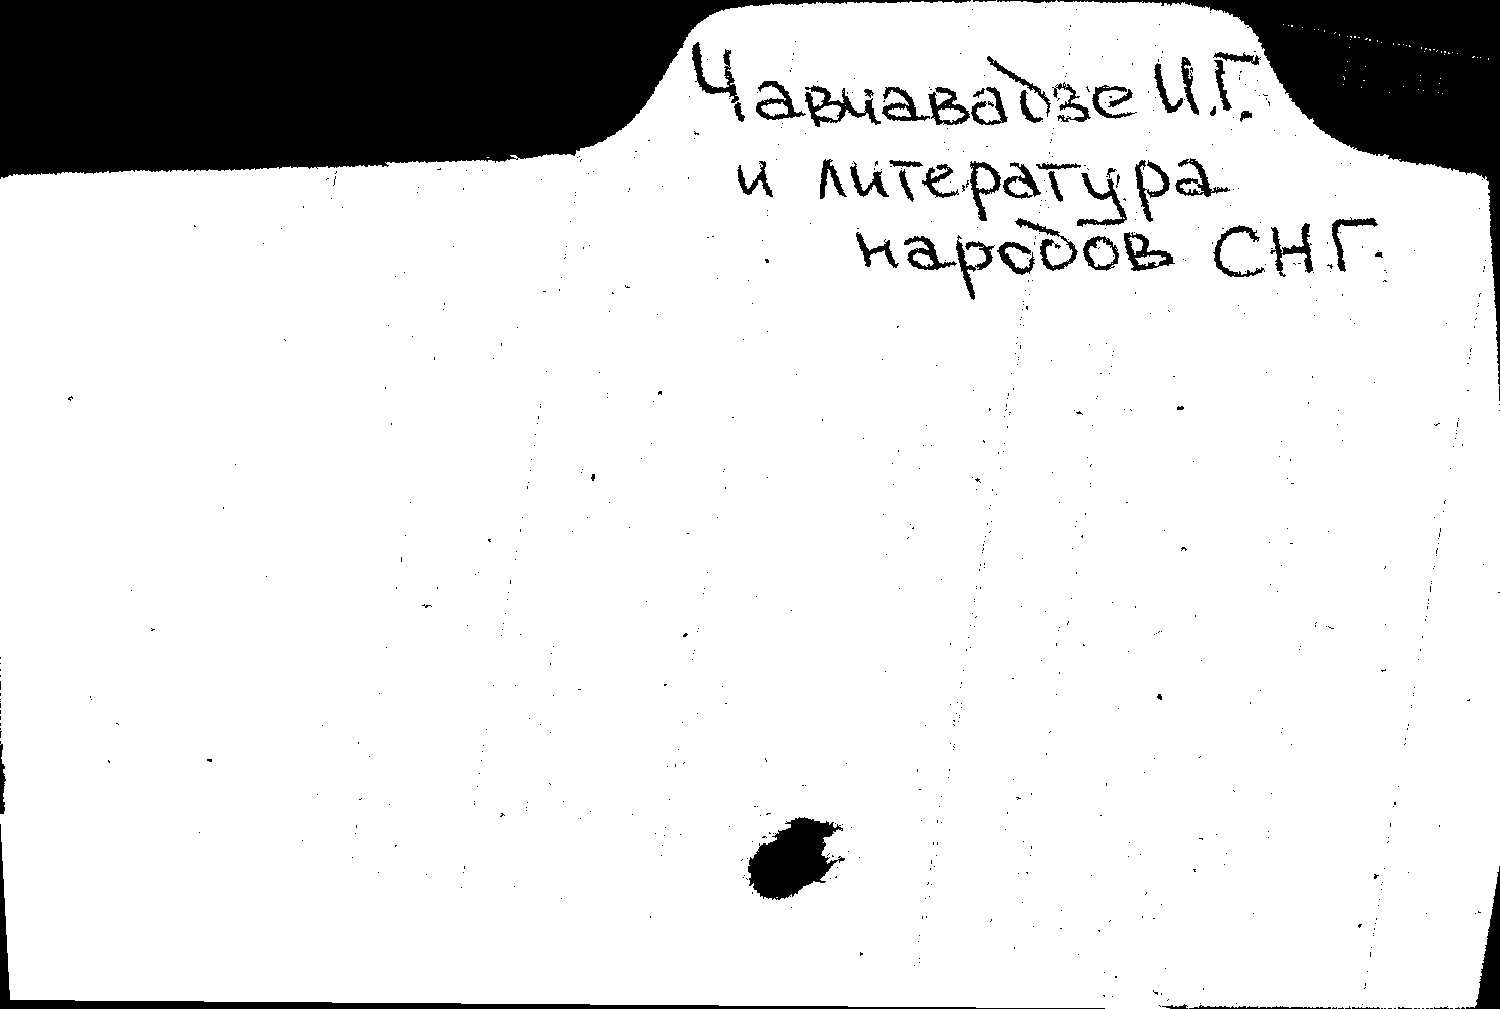 Чавчавадзе И.Г.
и литература
народов СНГ.